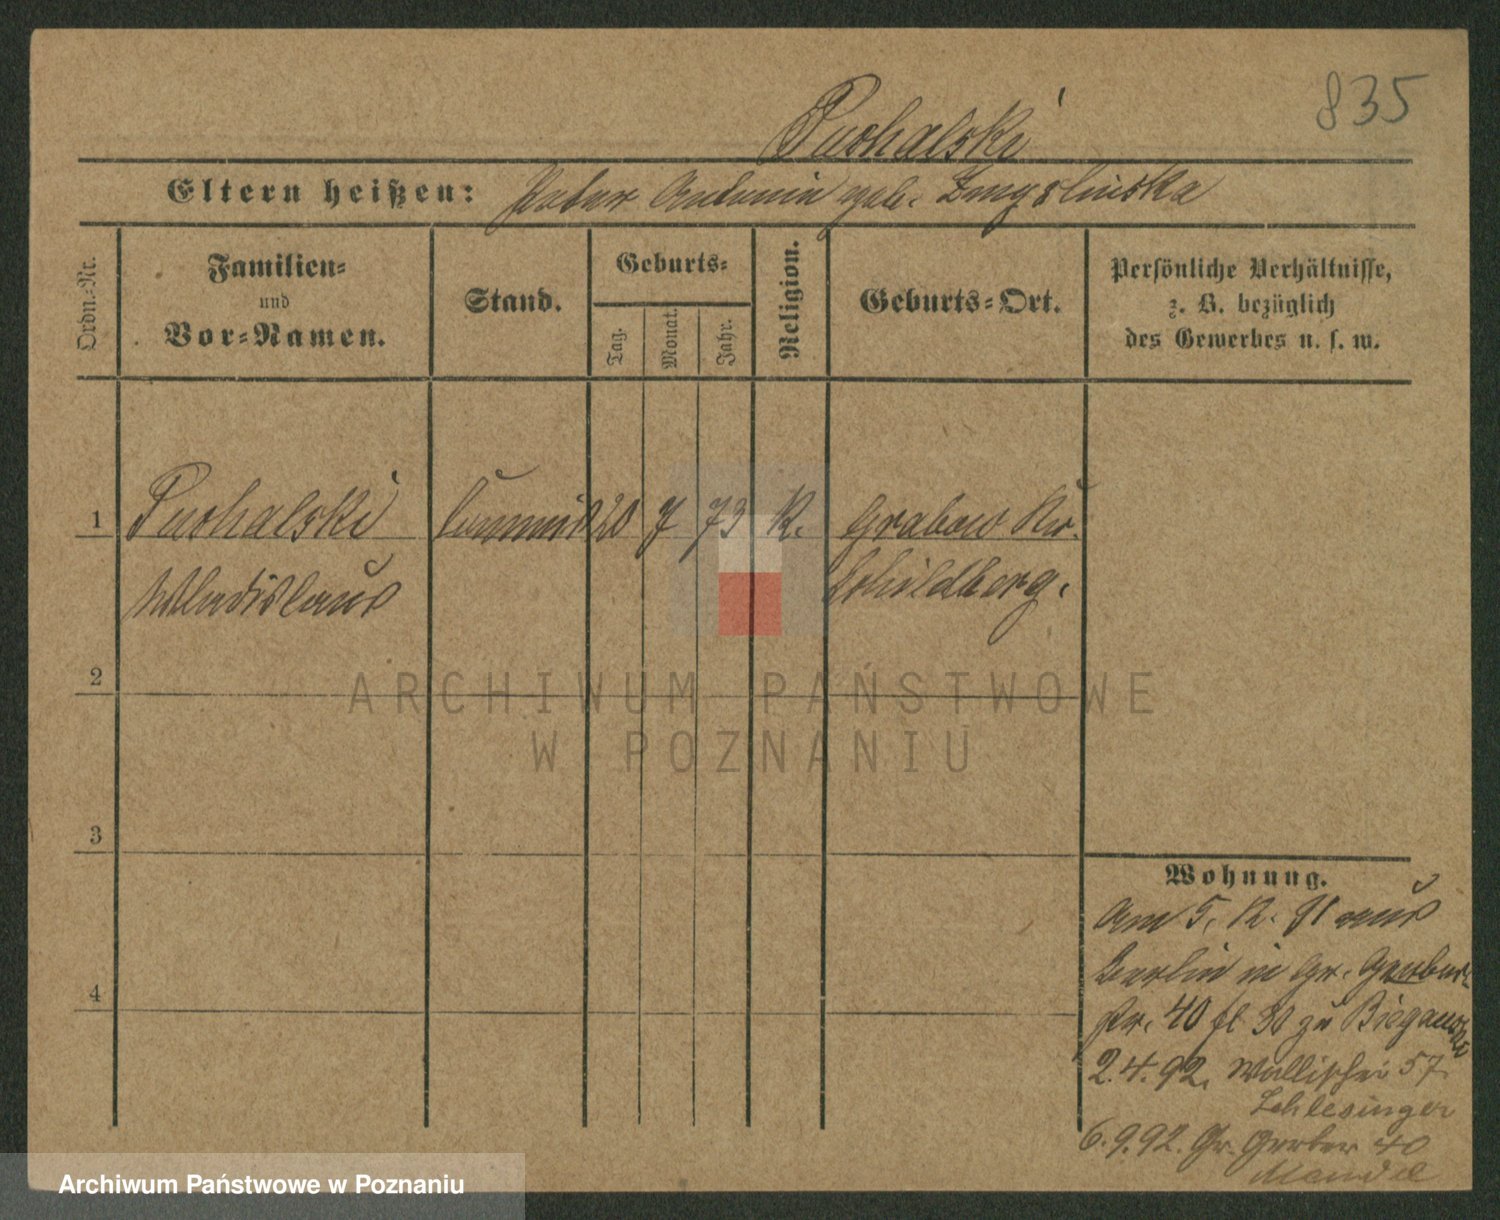 835
Puchalski
Eltern heißen: Peter Antonie geb. Zmyslinska
Ordn.-Nr.
Familien-
und
Vor-Namen.
Stand.
Geburts-
Tag.
Monat.
Jahr.
Religion.
Geburts-Ort.
Persönliche Verhältnisse,
z. B. bezüglich
des Gewerbes u. s. w.
1 Puchalski Commis 20 7 73 K. Grabow Kr.
Wladislaus Schildberg.
2
3
4
ARCHIWUM PAŃSTWOWE
W POZNANIU
Wohnung.
Am 5. 12. 91 aus
Berlin in Gr. Gerber-
str. 40 zu Biegański
2.4.92. Wallischei 57
Schlesinger
6.9.92. Gr. Gerber 40
Mandel
Archiwum Państwowe w Poznaniu